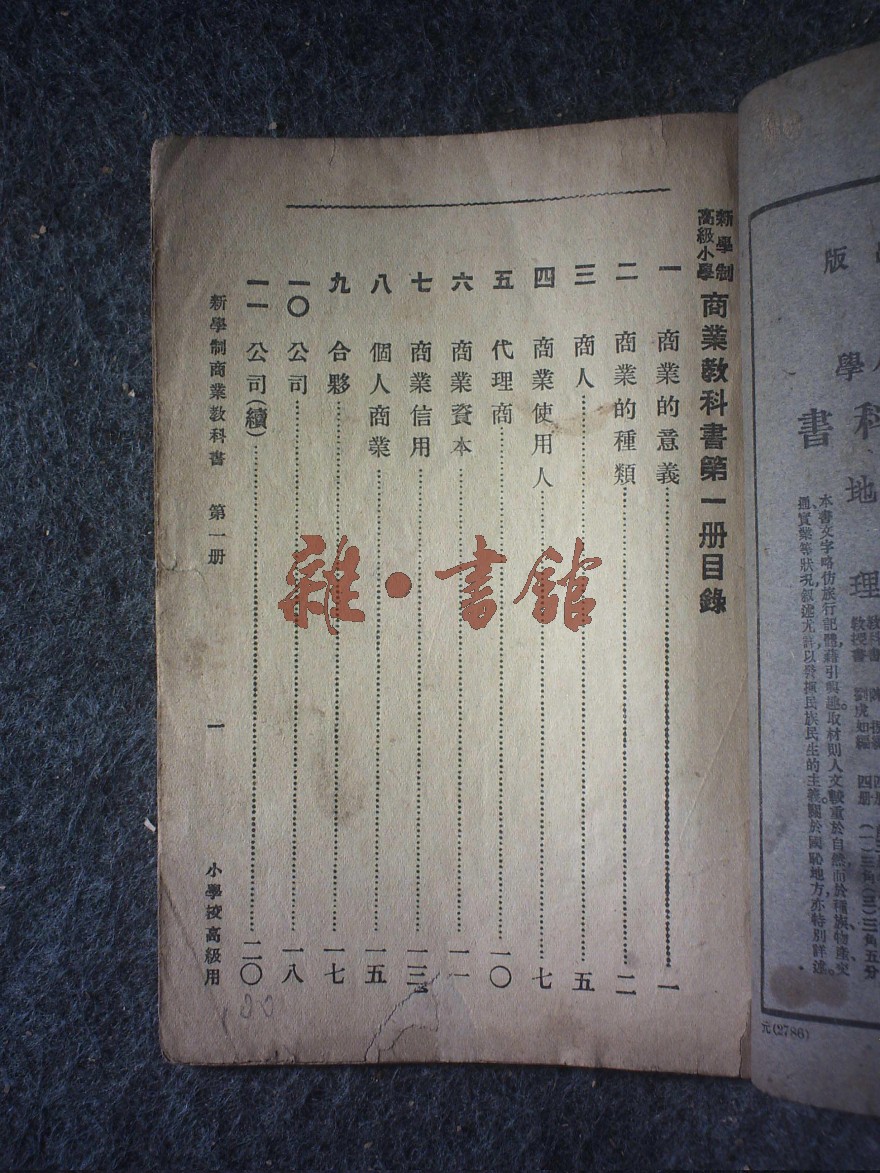 新學制
高級小學
商業教科書第一册目錄
一 商業的意義 一
二 商業的種類 二
三 商人 五
四 商業使用人 七
五 代理商 一〇
六 商業資本 一一
七 商業信用 一三
八 個人商業 一五
九 合夥 一七
一〇 公司 一八
一一 公司(續) 二〇
新學制商業教科書 第一册 一 小學校高級用
雜·書館
版
學
科
書
地
理
本書文字略仿旅行記體藉引興趣取材則人文較重於自然而於種族物產交
通實業等狀況叙述尤詳以發揮民族民生的主義關於國恥地方亦特別詳述
教授書 劉虎如編 四册
元(2786)